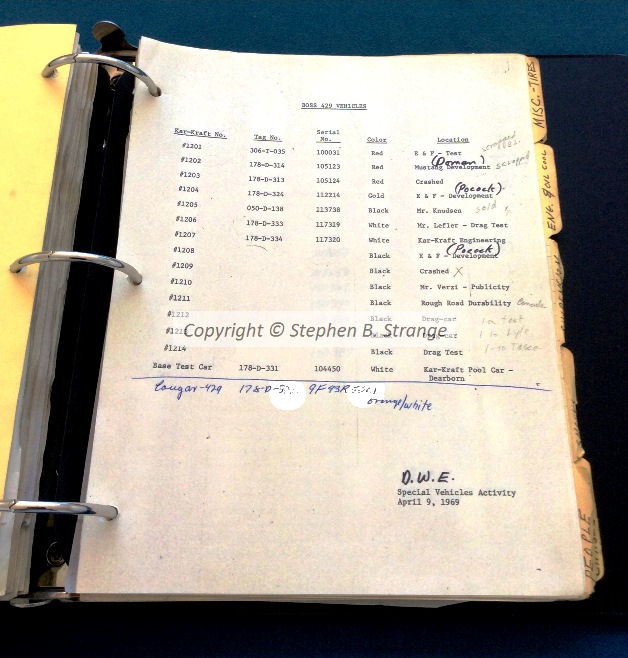 BOSS 429 VEHICLES
Kar-Kraft No. Tag No. Serial No. Color Location
#1201 306-T-035 100031 Red E & F - Test scrapped
#1202 178-D-314 105123 Red Mustang Development (Doman) scrapped
#1203 178-D-313 105124 Red Crashed
#1204 178-D-324 112214 Gold E & F - Development (Pocock)
#1205 050-D-138 113738 Black Mr. Knudsen sold
#1206 178-D-333 117319 White Mr. Lefler - Drag Test
#1207 178-D-334 117320 White Kar-Kraft Engineering
#1208 Black E & F - Development (Pocock)
#1209 Black Crashed X
#1210 Black Mr. Verzi - Publicity
#1211 Black Rough Road Durability
#1212 Black Drag-car
#1214 Black Drag Test
Base Test Car 178-D-331 104450 White Kar-Kraft Pool Car -
Dearborn
Cougar-429 178-D- 9F93R
orange/white
Copyright © Stephen B. Strange
D.W.E.
Special Vehicles Activity
April 9, 1969
MISC.-TIRES
PEOPLE